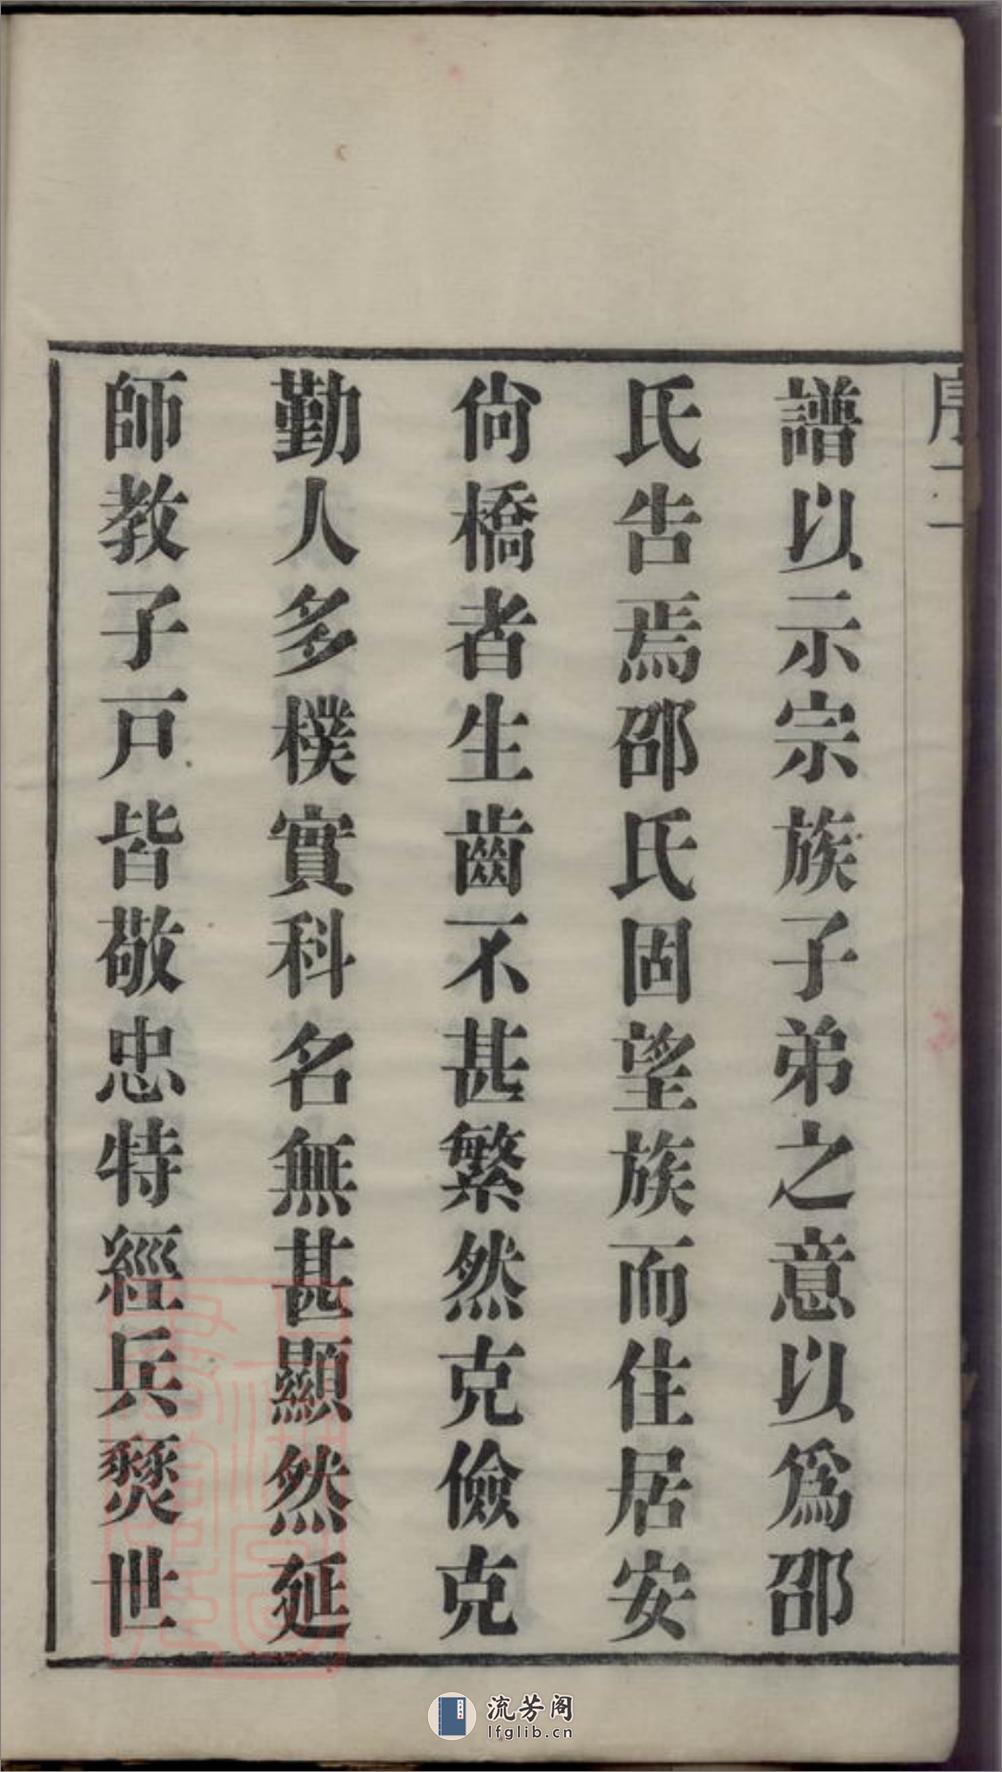 序二
譜以示宗族子弟之意以爲邵
氏告焉邵氏固望族而住居安
尙橋者生齒不甚繁然克儉克
勤人多樸實科名無甚顯然延
師教子戸皆敬忠特經兵燹世
流芳阁
lfglib.cn